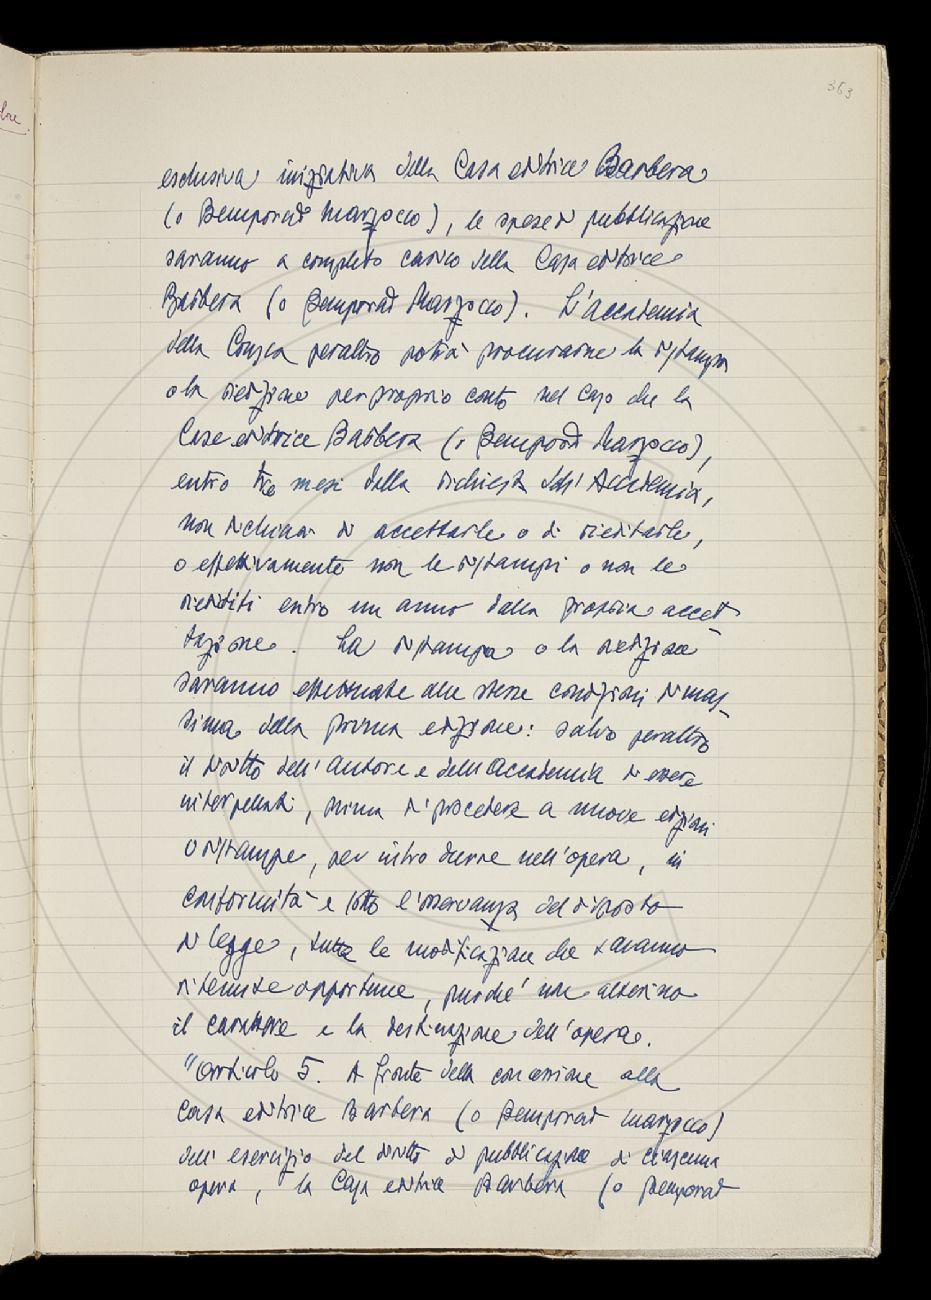 363
bre
esclusiva iniziativa della Casa editrice Barbera
(o Bemporad Marzocco), le spese di pubblicazione
saranno a completo carico della Casa editrice
Barbera (o Bemporad Marzocco). L'Accademia
della Crusca peraltro potrà procurarne la ristampa
o la riedizione per proprio conto nel caso che la
Casa editrice Barbera (o Bemporad Marzocco),
entro tre mesi dalla richiesta dell'Accademia,
non dichiari di accettarle o di rieditarle,
o effettivamente non le ristampi o non le
riediti entro un anno dalla propria accet-
tazione. La ristampa o la riedizione
saranno effettuate alle stesse condizioni di mas-
sima della prima edizione: salvo peraltro
il diritto dell'autore e dell'Accademia di essere
interpellati, prima di procedere a nuove edizioni
o ristampe, per introdurre nell'opera, in
conformità e sotto l'osservanza del disposto
di legge, tutte le modificazioni che saranno
ritenute opportune, purché non alterino
il carattere e la destinazione dell'opera.
"Articolo 5. A fronte della concessione alla
Casa editrice Barbera (o Bemporad Marzocco)
dell'esercizio del diritto di pubblicazione di ciascuna
opera, la Casa editrice Barbera (o Bemporad